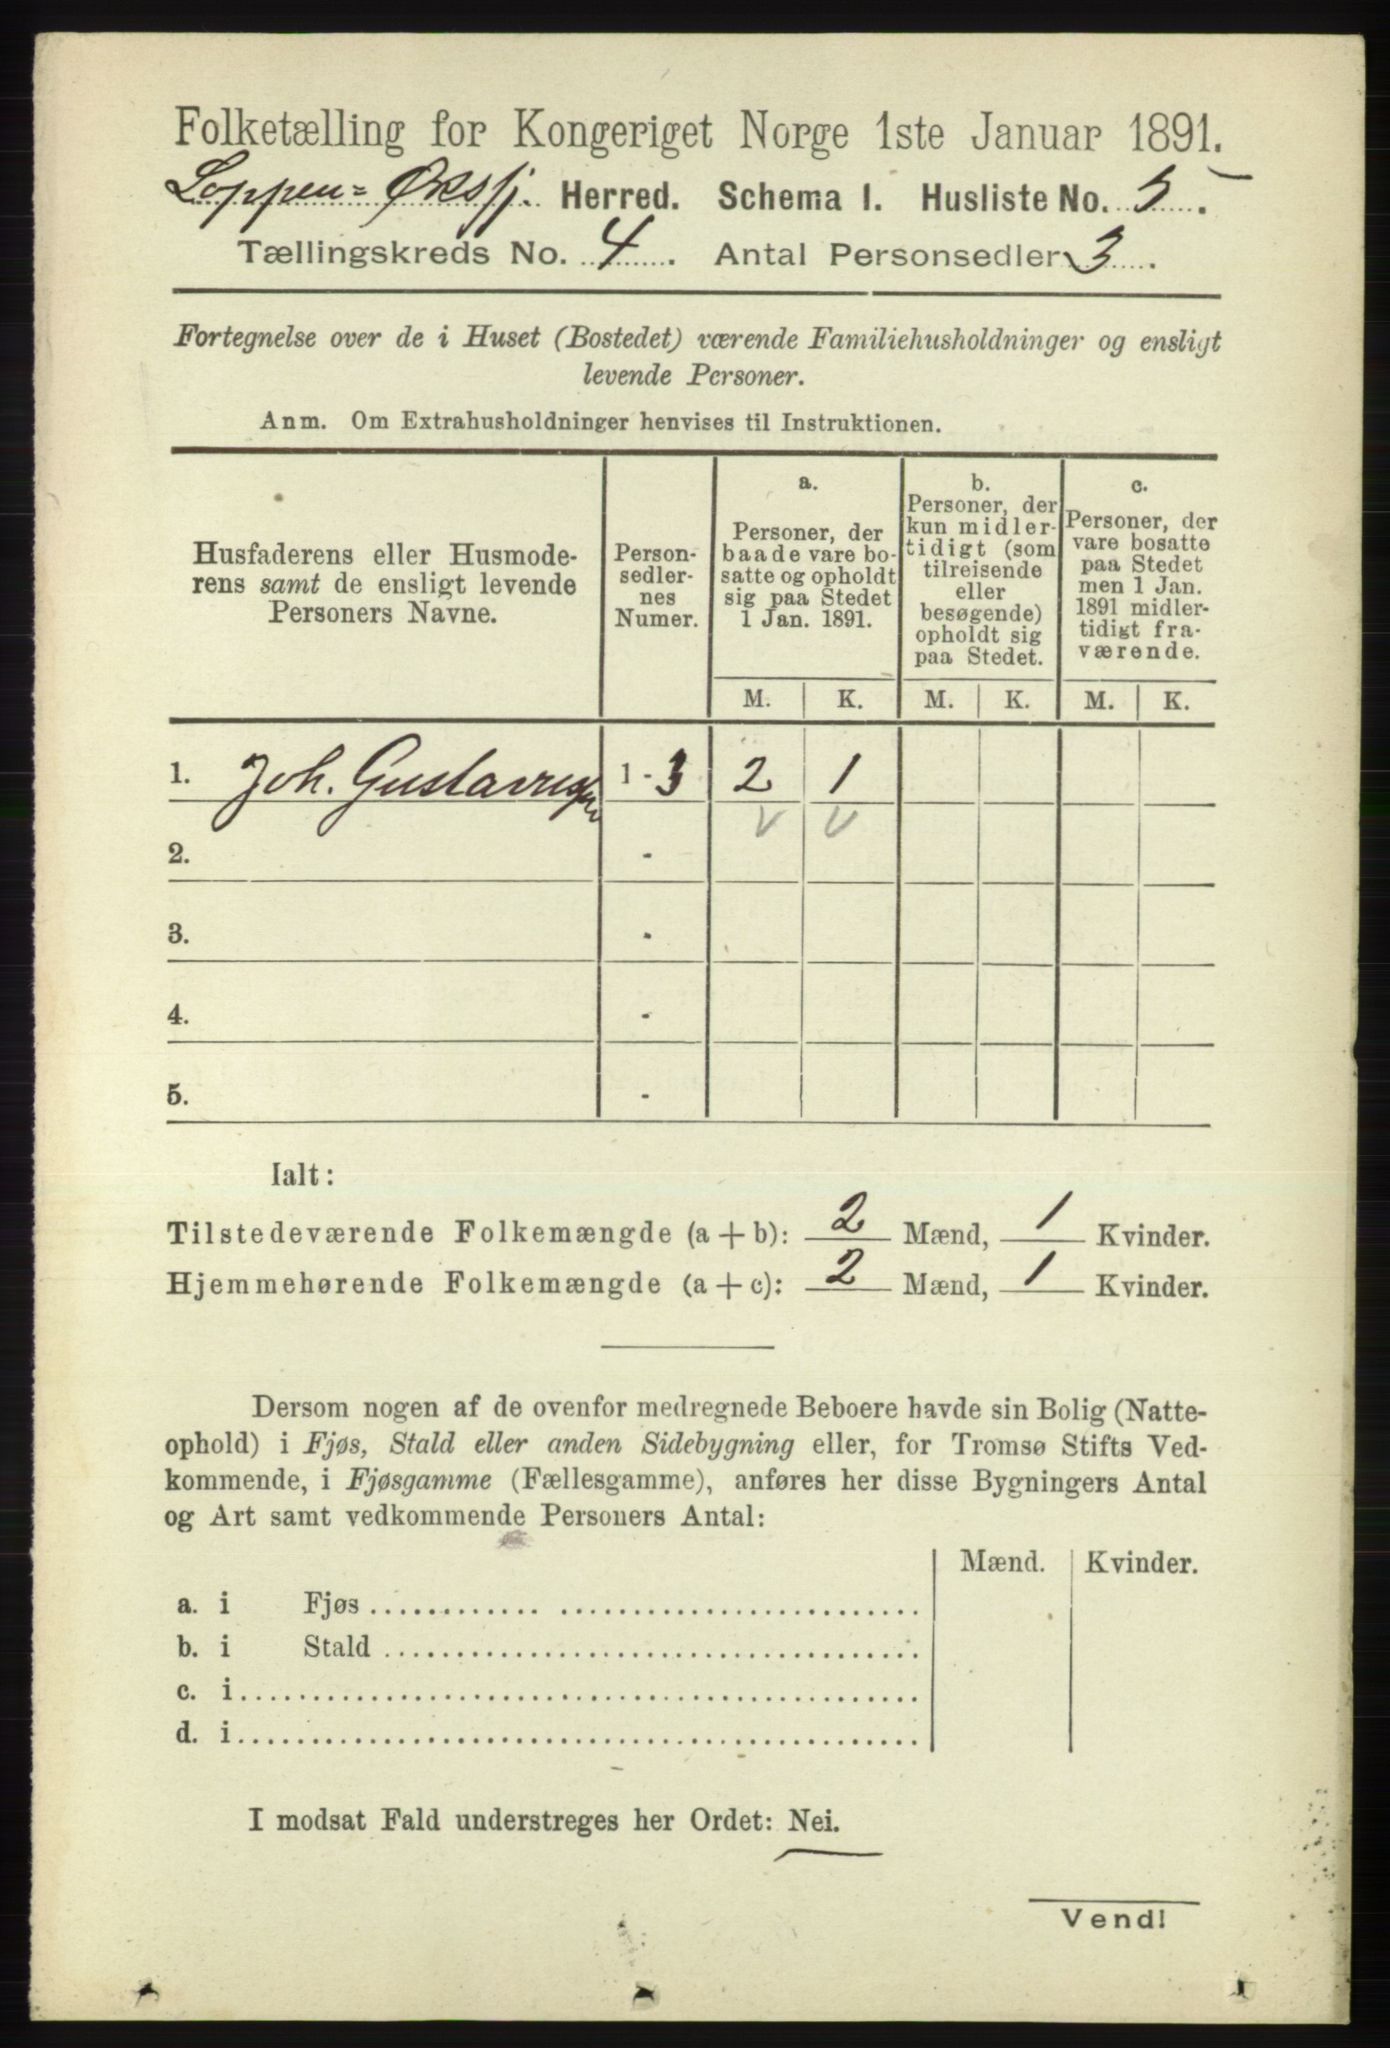 Folketælling for Kongeriget Norge 1ste Januar 1891.
Loppen = Øksfj. Herred. Schema I. Husliste No. 5.
Tællingskreds No. 4. Antal Personsedler 3.
Fortegnelse over de i Huset (Bostedet) værende Familiehusholdninger og ensligt
levende Personer.
Anm. Om Extrahusholdninger henvises til Instruktionen.
Husfaderens eller Husmode-
rens samt de ensligt levende
Personers Navne.
Person-
sedler-
nes
Numer.
a.
Personer, der
baade vare bo-
satte og opholdt
sig paa Stedet
1 Jan. 1891.
b.
Personer, der
kun midler-
tidigt (som
tilreisende
eller
besøgende)
opholdt sig
paa Stedet.
c.
Personer, der
vare bosatte
paa Stedet
men 1 Jan.
1891 midler-
tidigt fra-
værende.
M. K. M. K. M. K.
1. Joh. Gustavsen 1 - 3 2 1
2. -
3. -
4. -
5. -
Ialt:
Tilstedeværende Folkemængde (a + b): 2 Mænd, 1 Kvinder.
Hjemmehørende Folkemængde (a + c): 2 Mænd, 1 Kvinder.
Dersom nogen af de ovenfor medregnede Beboere havde sin Bolig (Natte-
ophold) i Fjøs, Stald eller anden Sidebygning eller, for Tromsø Stifts Ved-
kommende, i Fjøsgamme (Fællesgamme), anføres her disse Bygningers Antal
og Art samt vedkommende Personers Antal:
Mænd. Kvinder.
a. i Fjøs
b. i Stald
c. i
d. i
I modsat Fald understreges her Ordet: Nei.
Vend!